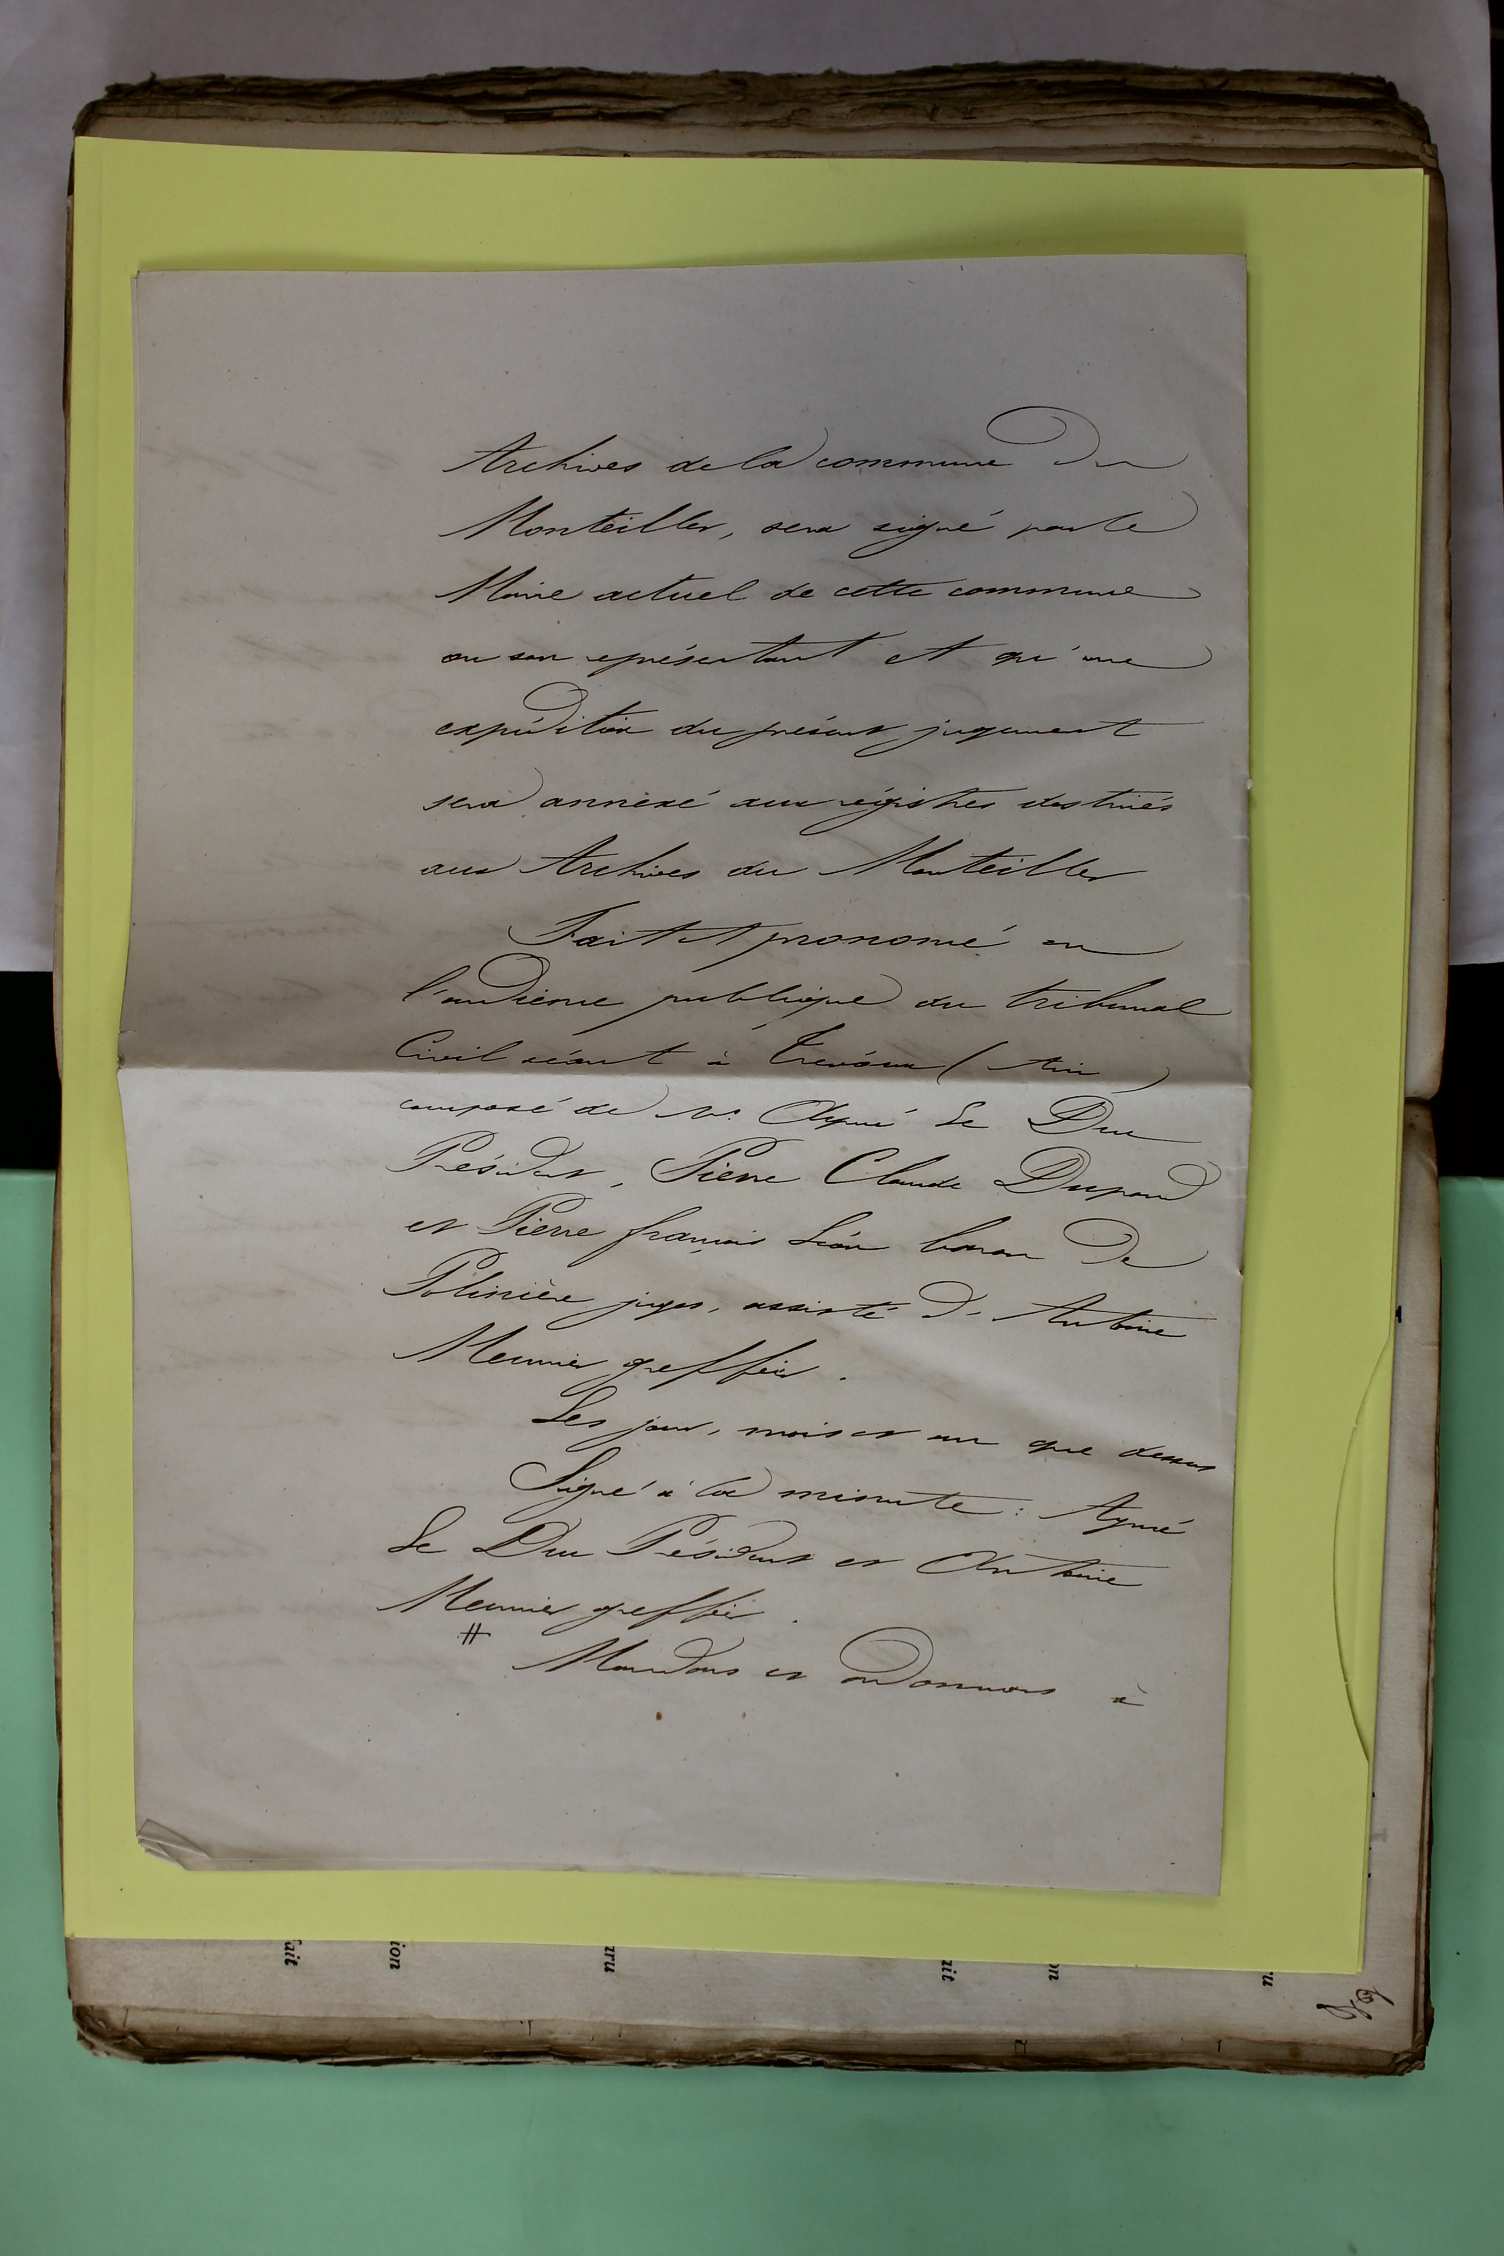 Archives de la commune Du
Montellier, sera signé par le
Maire actuel de cette commune
ou son représentant et qu'une
expédition du présent jugement
sera annexé aux régistres destinés
aux Archives du Montellier
Fait et prononcé en
l'audience publique du tribunal
Civil séant à Trévoux (Ain)
composé de Mrs Aymé Le Duc
Président, Pierre Claude Dupond
et Pierre françois Léon baron De
Polinière juges, assisté d'Antoine
Meunier greffier.
Les jour, mois et an que dessus
Signé à la minute : Aymé
Le Duc Président et Antoine
Meunier greffier.
Mandons et ordonnons à
ait
ion
uru
ait
on
u